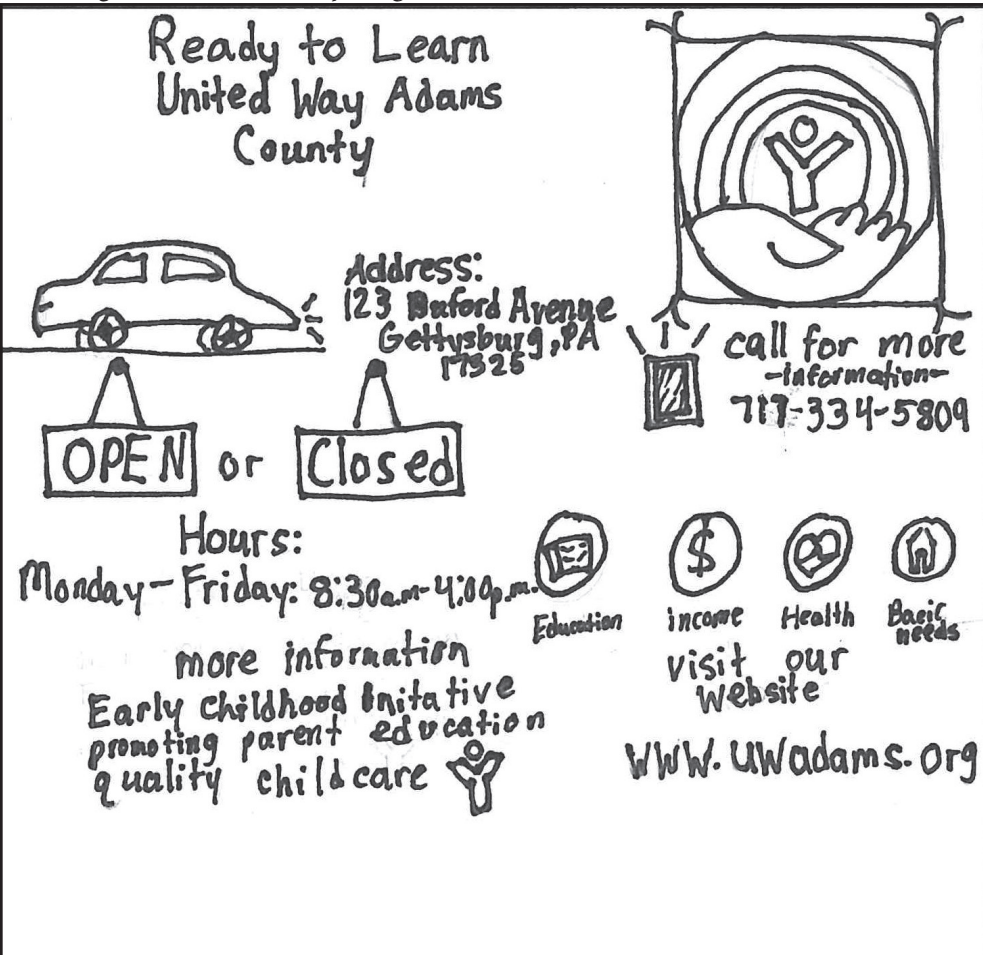 Ready to Learn
United Way Adams
County
Address:
123 Buford Avenue
Gettysburg, PA
17325
call for more
-information-
717-334-5809
OPEN or Closed
Hours:
Monday-Friday: 8:30a.m-4:00p.m.
Education
income
Health
Basic
needs
more information
Early childhood Initative
promoting parent education
quality childcare
visit our
website
www.uwadams.org